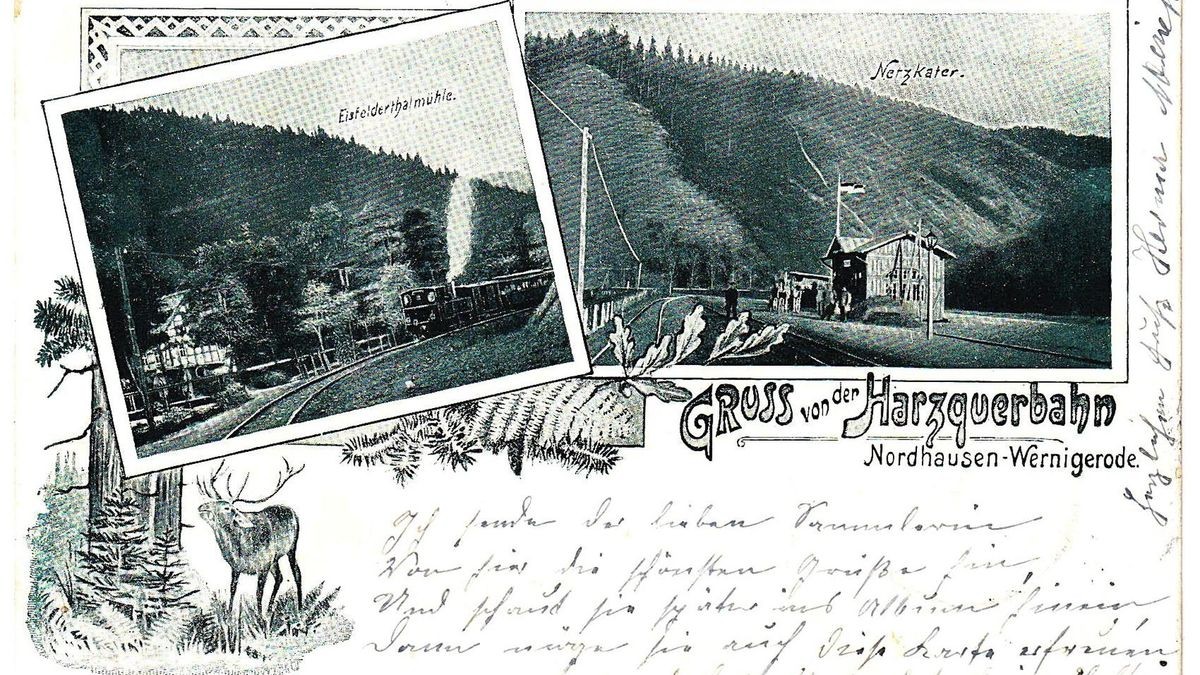 Eisfelderthalmühle.
Netzkater.
GRUSS von der Harzquerbahn
Nordhausen-Wernigerode.
Ich sende der lieben Sammlerin
Von hier die schönsten Grüße hin,
Und schaut sie später ins Album hinein
Dann möge sie auch diese Karte erfreuen